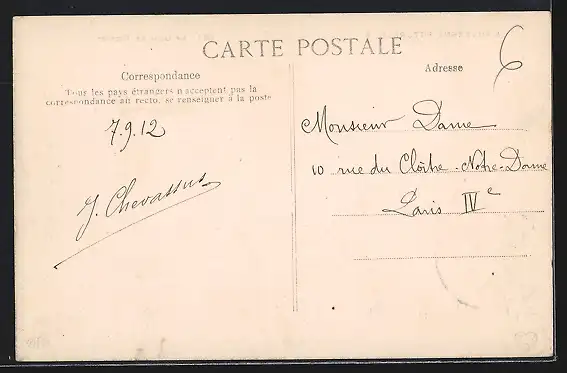 CARTE POSTALE
Correspondance
Tous les pays étrangers n'acceptent pas la
correspondance au recto, se renseigner à la poste
7.9.12
J. Chevassus
Adresse
6
Monsieur Dame
10 rue du Cloître-Notre-Dame
Paris IVe